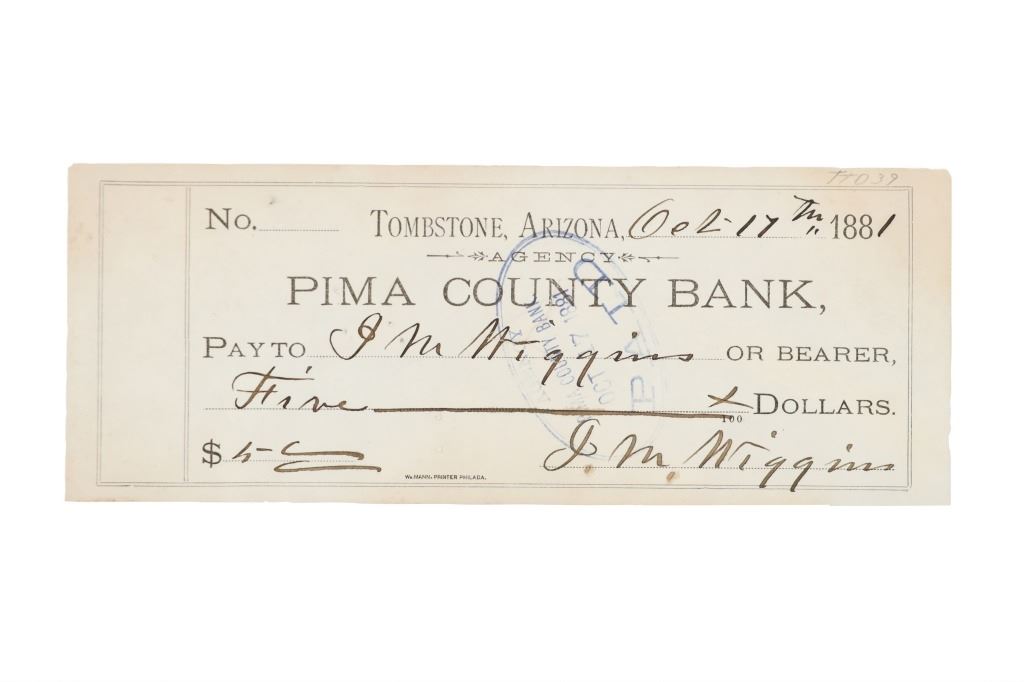 TTD39
No. TOMBSTONE, ARIZONA, Oct 17th 1881
AGENCY
PIMA COUNTY BANK,
PAY TO J M Wiggins OR BEARER,
Five x/100 DOLLARS.
$5 J. M. Wiggins
WM. MANN, PRINTER PHILADA.
PAID
COUNTY BANK
OCT 17 1881